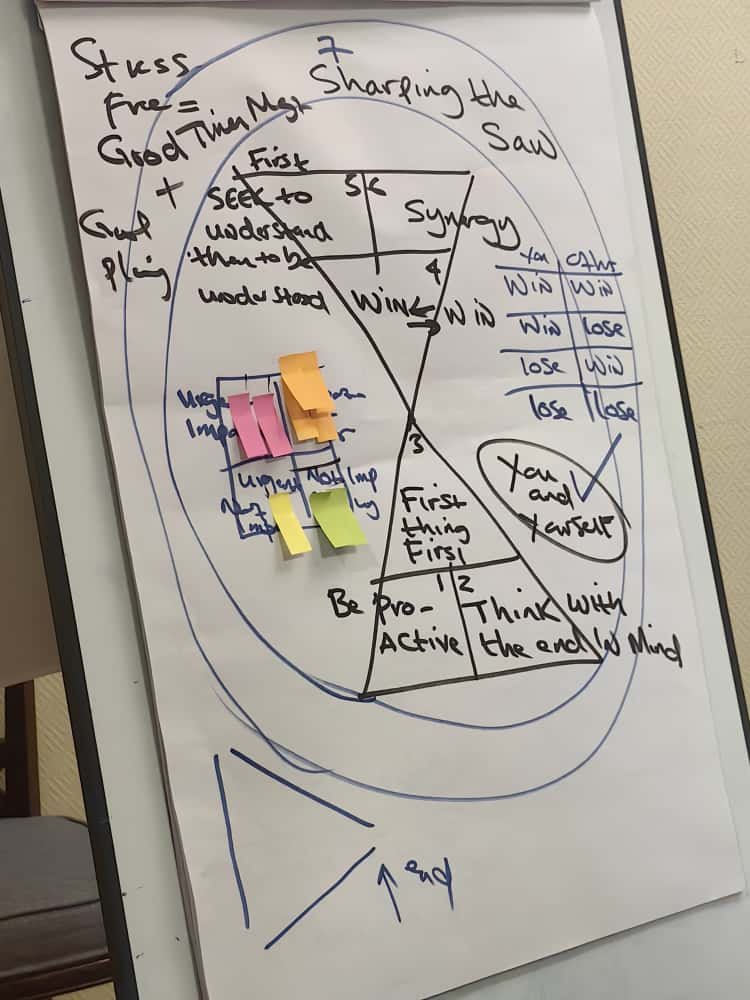 Stress
Free =
Good Time Mgt
+
Goal
Plaing
7
Sharping the
Saw
First
SEEK to
understand
then to be
understood
5 6
Synergy
4
Win Win
You Other
Win Win
Win Lose
Lose Win
lose Lose
Urge
Impo
Urgent
Not Imp
3
First
thing
First
You
and
Yourself
1 2
Be Pro-
Active
Think with
the end in Mind
end